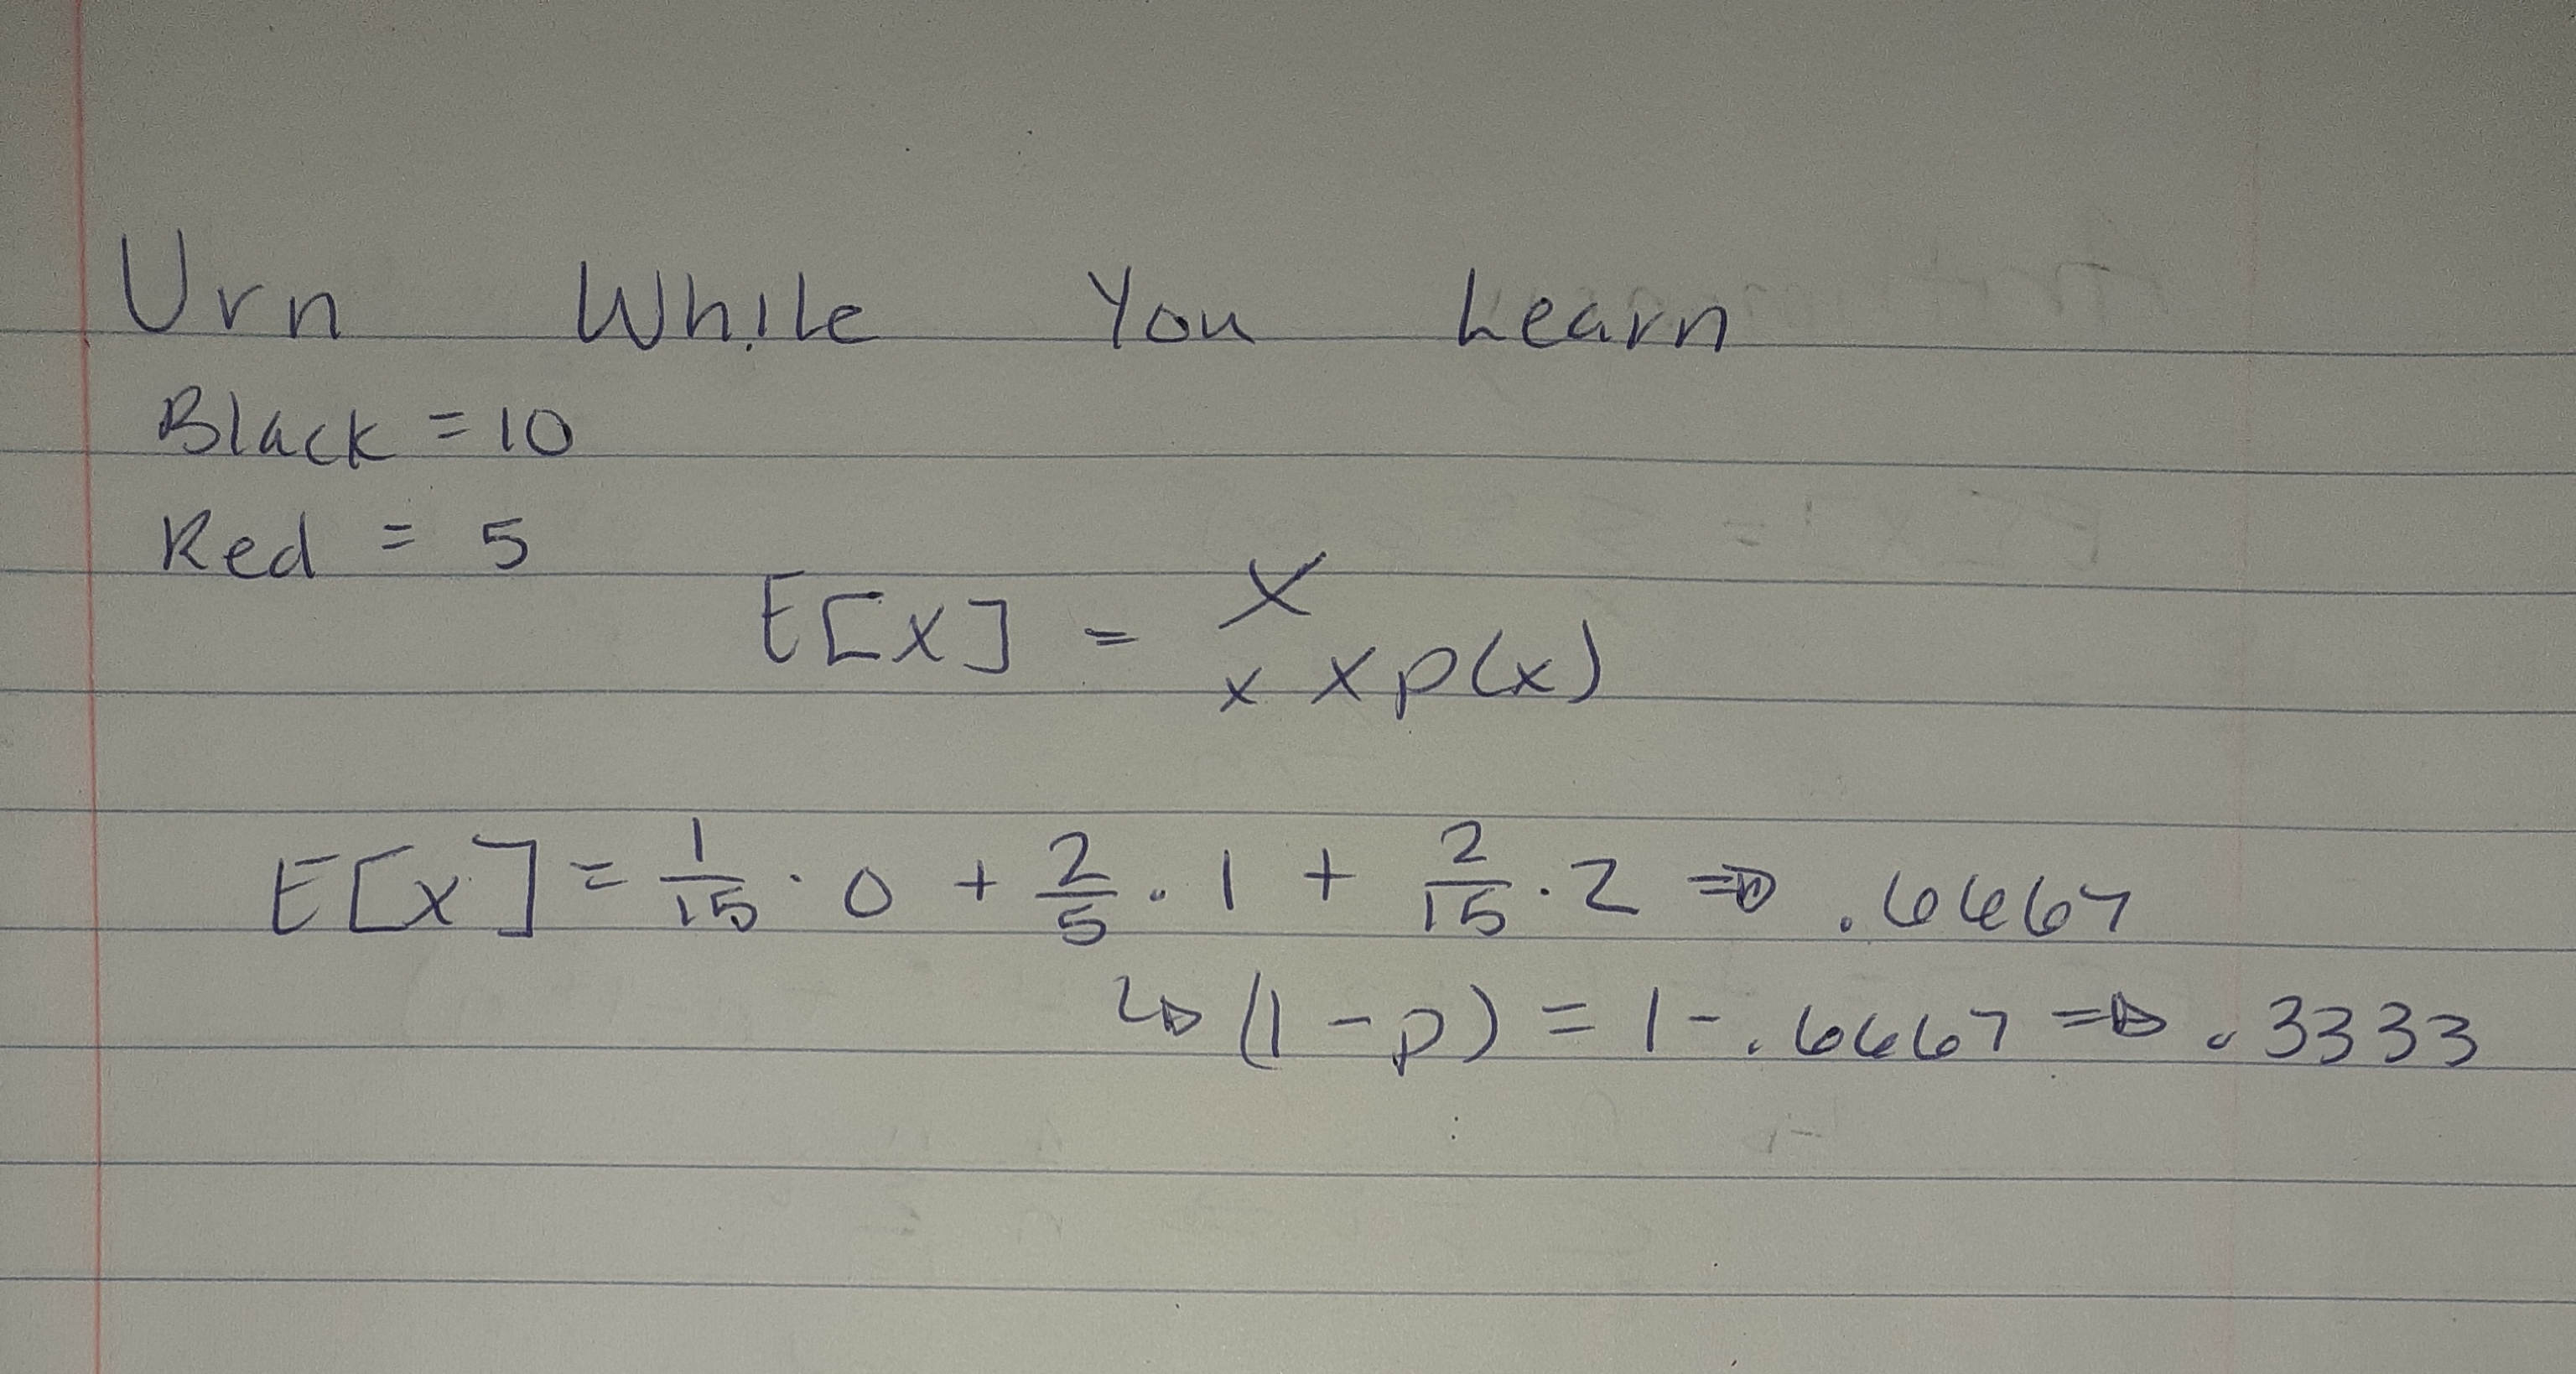 Urn While You Learn
Black = 10
Red = 5
E[X] = X
x x p(x)
E[x] = 1/15 · 0 + 2/5 · 1 + 2/15 · 2 ⇒ .6667
↳ (1 - p) = 1 - .6667 ⇒ .3333